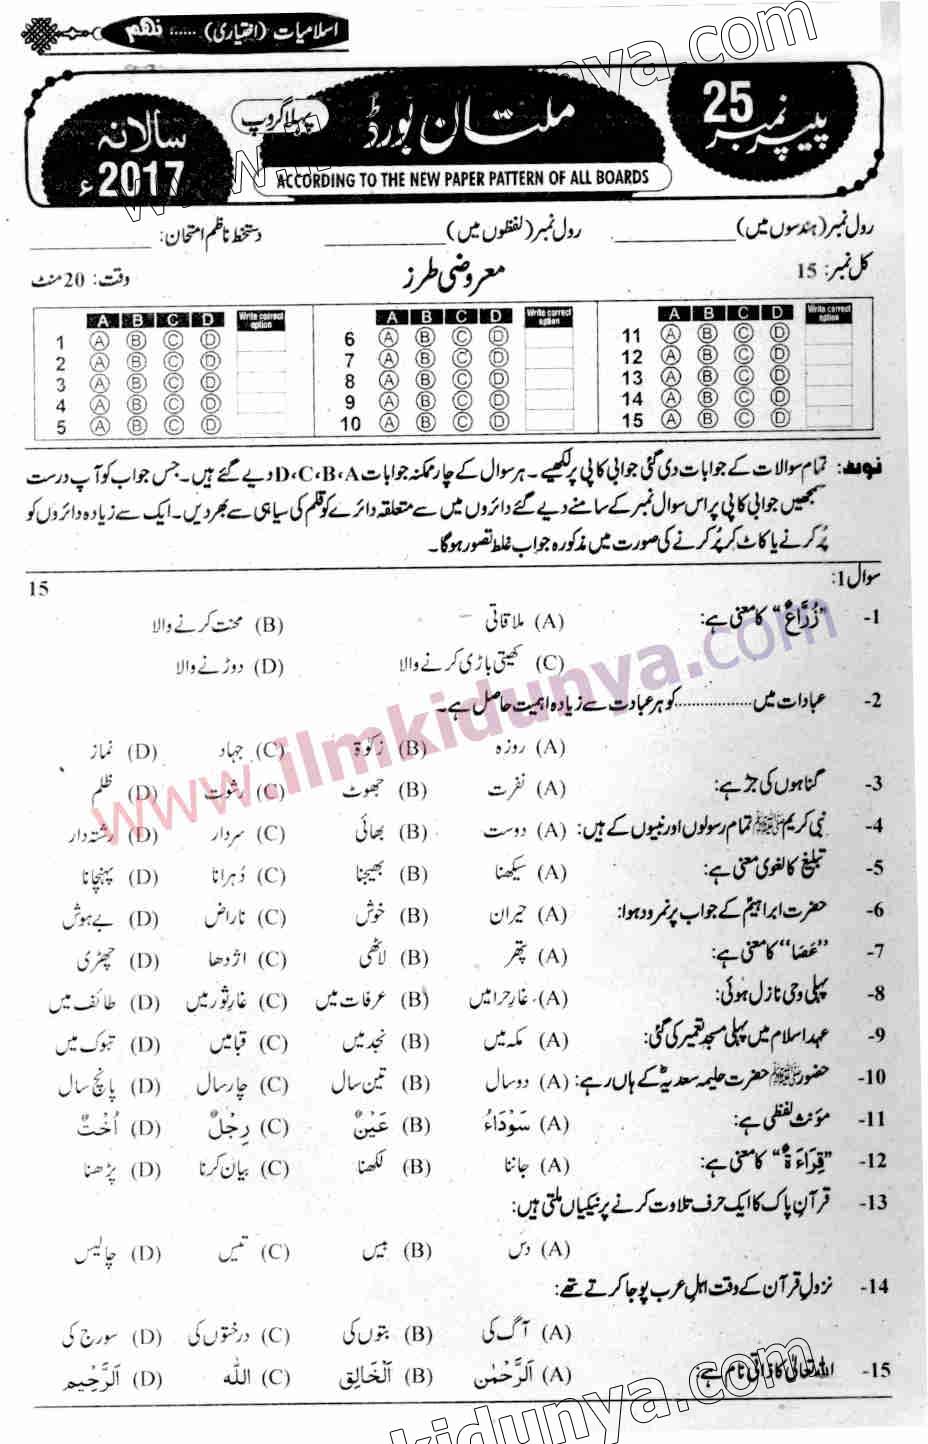 اسلامیات (اختیاری) ...... نہم
پیپر نمبر 25
ملتان بورڈ
پہلا گروپ
سالانہ 2017ء
ACCORDING TO THE NEW PAPER PATTERN OF ALL BOARDS
رول نمبر (ہندسوں میں) ____________ رول نمبر (لفظوں میں) ____________ دستخط ناظم امتحان: ____________
کل نمبر: 15 معروضی طرز وقت: 20 منٹ
A B C D Write correct option A B C D Write correct option A B C D Write correct option
1 A B C D 6 A B C D 11 A B C D
2 A B C D 7 A B C D 12 A B C D
3 A B C D 8 A B C D 13 A B C D
4 A B C D 9 A B C D 14 A B C D
5 A B C D 10 A B C D 15 A B C D
نوٹ: تمام سوالات کے جوابات دی گئی جوابی کاپی پر لکھیے۔ ہر سوال کے چار ممکنہ جوابات D،C،B،A دیے گئے ہیں۔ جس جواب کو آپ درست
سمجھیں جوابی کاپی پر اس سوال نمبر کے سامنے دیے گئے دائروں میں سے متعلقہ دائرے کو قلم کی سیاہی سے بھر دیں۔ ایک سے زیادہ دائروں کو
پُر کرنے یا کاٹ کر پُر کرنے کی صورت میں مذکورہ جواب غلط تصور ہوگا۔
سوال 1: 15
1- "زُرَّاعٌ" کا معنی ہے: (A) ملاقاتی (B) محنت کرنے والا
(C) کھیتی باڑی کرنے والا (D) دوڑنے والا
2- عبادات میں .................. کو ہر عبادت سے زیادہ اہمیت حاصل ہے۔
(A) روزہ (B) زکوٰۃ (C) جہاد (D) نماز
3- گناہوں کی جڑ ہے: (A) نفرت (B) جھوٹ (C) رشوت (D) ظلم
4- نبی کریم ﷺ تمام رسولوں اور نبیوں کے ہیں: (A) دوست (B) بھائی (C) سردار (D) رشتہ دار
5- تبلیغ کا لغوی معنی ہے: (A) سیکھنا (B) بھیجنا (C) دُہرانا (D) پہنچانا
6- حضرت ابراہیمؑ کے جواب پر نمرود ہوا: (A) حیران (B) خوش (C) ناراض (D) بے ہوش
7- "عَصَا" کا معنی ہے: (A) پتھر (B) لاٹھی (C) اژدھا (D) چھڑی
8- پہلی وحی نازل ہوئی: (A) غارِ حرا میں (B) عرفات میں (C) غارِ ثور میں (D) طائف میں
9- عہد اسلام میں پہلی مسجد تعمیر کی گئی: (A) مکہ میں (B) نجد میں (C) قبا میں (D) تبوک میں
10- حضور ﷺ حضرت حلیمہ سعدیہؓ کے ہاں رہے: (A) دو سال (B) تین سال (C) چار سال (D) پانچ سال
11- مؤنث لفظی ہے: (A) سَوْدَاءُ (B) عَيْنٌ (C) رِجْلٌ (D) اُخْتٌ
12- "قِرَاءَةٌ" کا معنی ہے: (A) جاننا (B) لکھنا (C) بیان کرنا (D) پڑھنا
13- قرآنِ پاک کا ایک حرف تلاوت کرنے پر نیکیاں ملتی ہیں:
(A) دس (B) بیس (C) تیس (D) چالیس
14- نزولِ قرآن کے وقت اہلِ عرب پوجا کرتے تھے:
(A) آگ کی (B) بتوں کی (C) درختوں کی (D) سورج کی
15- اللہ تعالیٰ کا ذاتی نام ہے: (A) اَلرَّحْمٰن (B) اَلْخَالِق (C) اَللّٰه (D) اَلرَّحِيْم
www.ilmkidunya.com